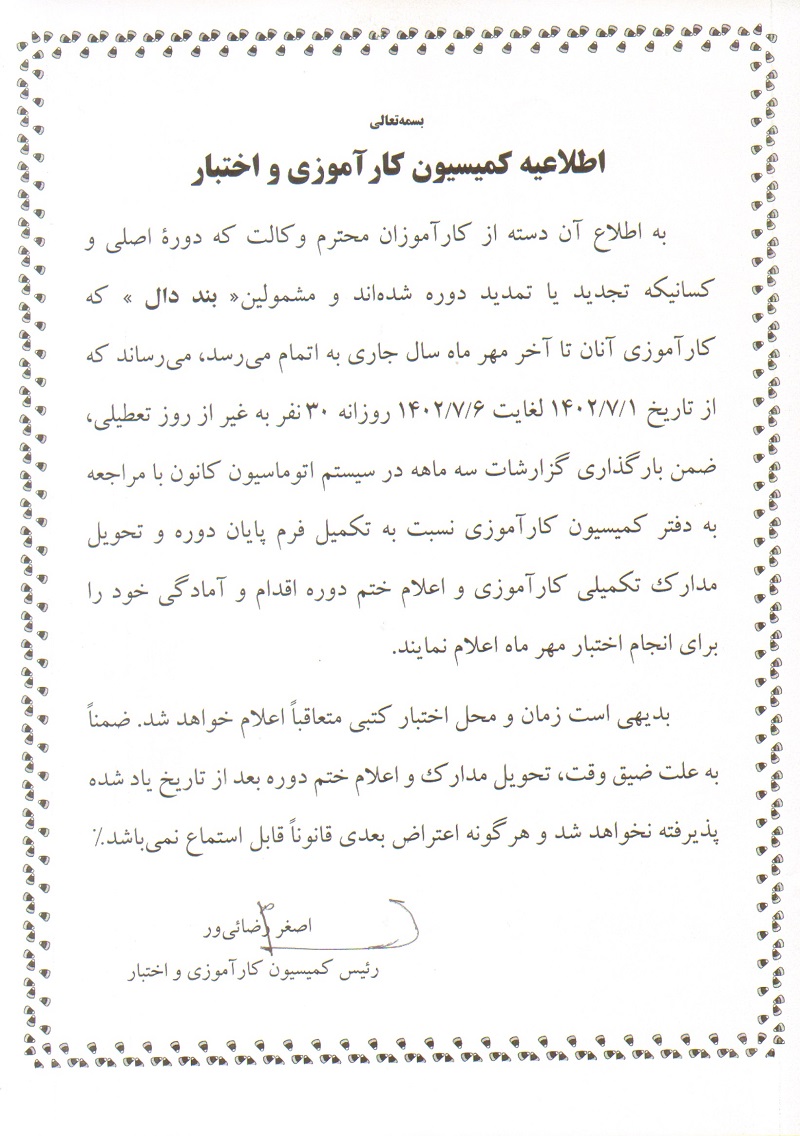 بسمه‌تعالی
اطلاعیه کمیسیون کارآموزی و اختبار
به اطلاع آن دسته از کارآموزان محترم وکالت که دورهٔ اصلی و
کسانیکه تجدید یا تمدید دوره شده‌اند و مشمولین« بند دال » که
کارآموزی آنان تا آخر مهر ماه سال جاری به اتمام می‌رسد، می‌رساند که
از تاریخ ۱۴۰۲/۷/۱ لغایت ۱۴۰۲/۷/۶ روزانه ۳۰ نفر به غیر از روز تعطیلی،
ضمن بارگذاری گزارشات سه ماهه در سیستم اتوماسیون کانون با مراجعه
به دفتر کمیسیون کارآموزی نسبت به تکمیل فرم پایان دوره و تحویل
مدارک تکمیلی کارآموزی و اعلام ختم دوره اقدام و آمادگی خود را
برای انجام اختبار مهر ماه اعلام نمایند.
بدیهی است زمان و محل اختبار کتبی متعاقباً اعلام خواهد شد. ضمناً
به علت ضیق وقت، تحویل مدارک و اعلام ختم دوره بعد از تاریخ یاد شده
پذیرفته نخواهد شد و هرگونه اعتراض بعدی قانوناً قابل استماع نمی‌باشد.٪
اصغر رضائی‌ور
رئیس کمیسیون کارآموزی و اختبار